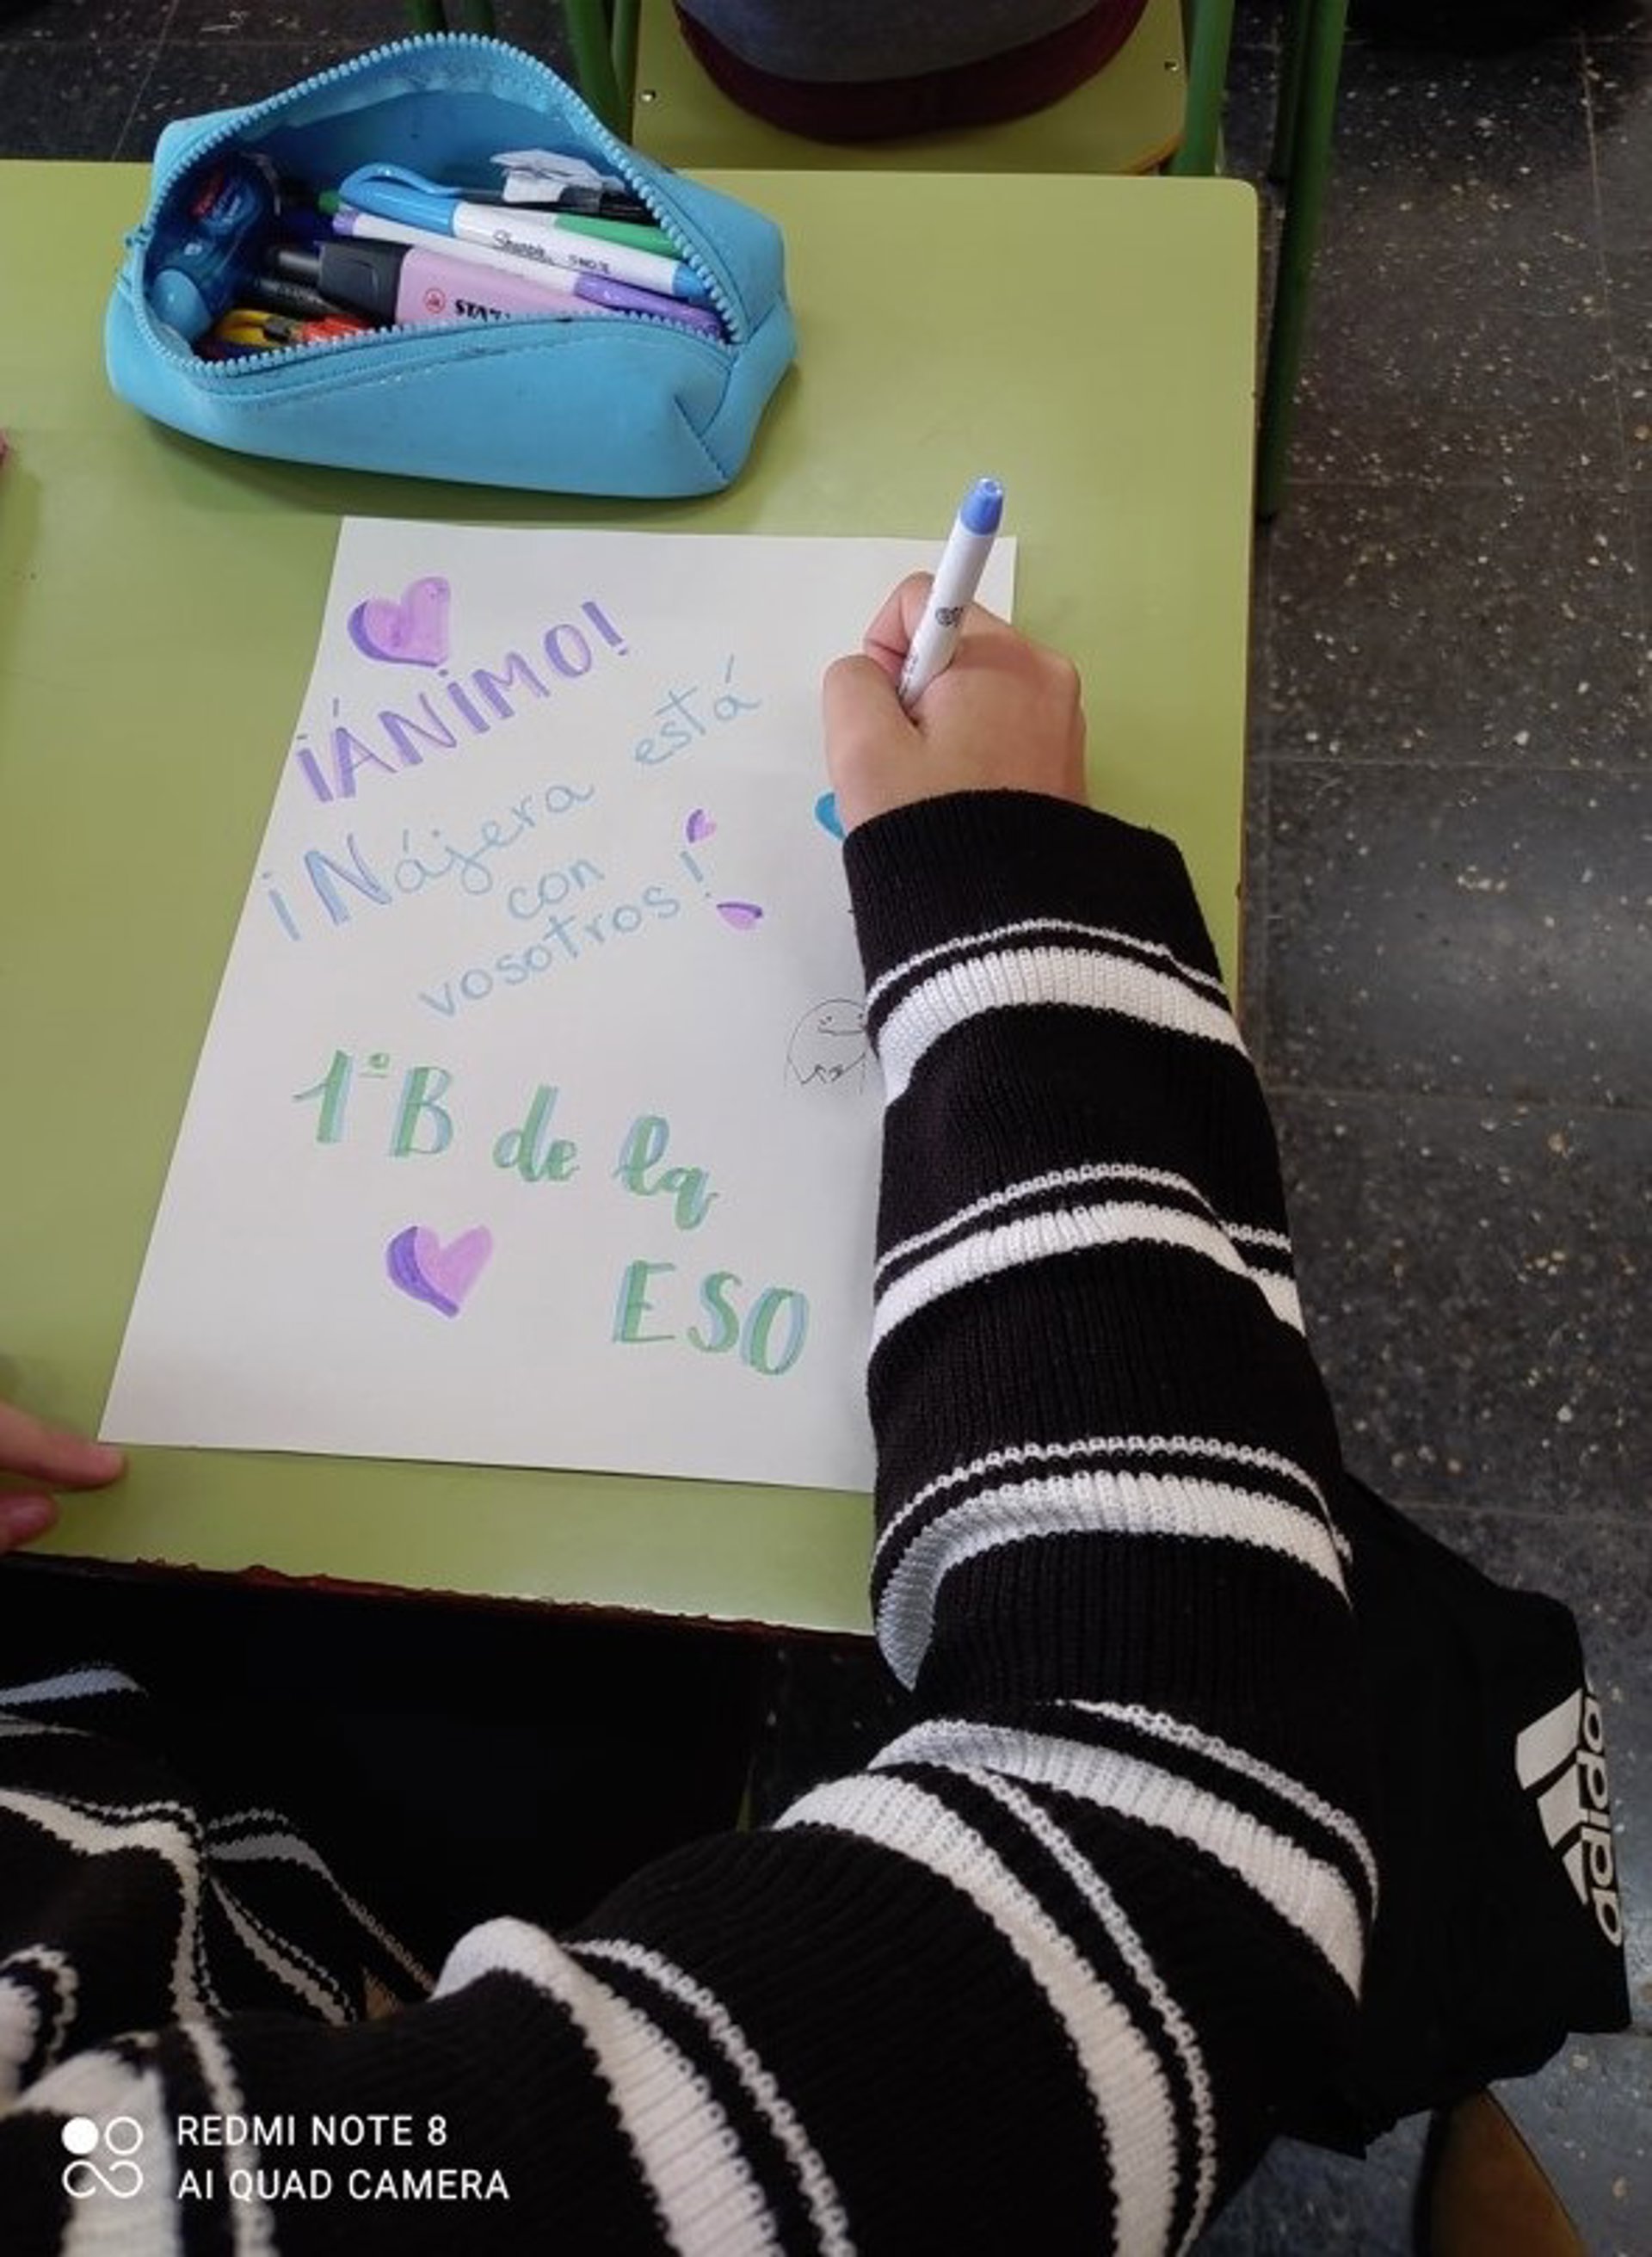 Sharpie
STA
¡ÁNIMO!
¡Nájera está
con
vosotros!
1º B de la
ESO
adidas
REDMI NOTE 8
AI QUAD CAMERA